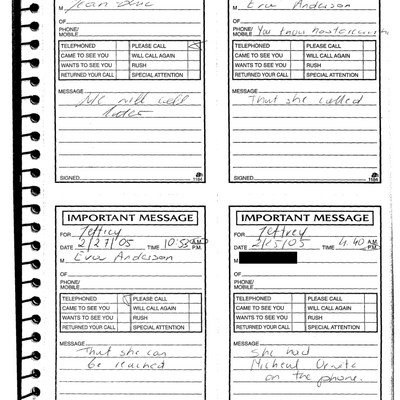 M Jean Luc
OF
PHONE/
MOBILE
TELEPHONED PLEASE CALL
CAME TO SEE YOU WILL CALL AGAIN
WANTS TO SEE YOU RUSH
RETURNED YOUR CALL SPECIAL ATTENTION
MESSAGE
will call
later
SIGNED
1184
M Eva Anderson
OF
PHONE/
MOBILE You know how to
TELEPHONED PLEASE CALL
CAME TO SEE YOU WILL CALL AGAIN
WANTS TO SEE YOU RUSH
RETURNED YOUR CALL SPECIAL ATTENTION
MESSAGE
That she called
SIGNED
1184
IMPORTANT MESSAGE
FOR Jeffrey
DATE 2/27/05 TIME 10:55 A.M. P.M.
M Eva Anderson
OF
PHONE/
MOBILE
TELEPHONED PLEASE CALL
CAME TO SEE YOU WILL CALL AGAIN
WANTS TO SEE YOU RUSH
RETURNED YOUR CALL SPECIAL ATTENTION
MESSAGE
That she can
be reached
IMPORTANT MESSAGE
FOR Jeffrey
DATE TIME 4:40 A.M. P.M.
M
OF
PHONE/
MOBILE
TELEPHONED PLEASE CALL
CAME TO SEE YOU WILL CALL AGAIN
WANTS TO SEE YOU RUSH
RETURNED YOUR CALL SPECIAL ATTENTION
MESSAGE
She had
on the phone.